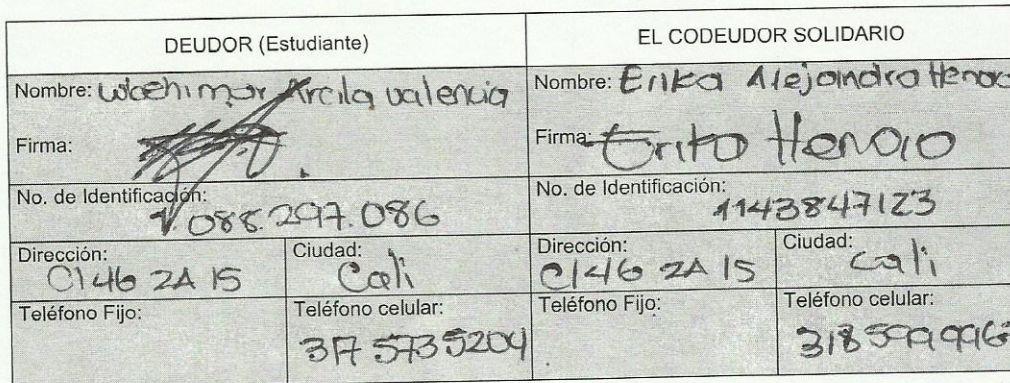 DEUDOR (Estudiante)
EL CODEUDOR SOLIDARIO
Nombre: Arcila valencia
Nombre: Erika Alejandra Henao
Firma:
Firma: Erika Henao
No. de Identificación: 1.088.297.086
No. de Identificación: 1143847123
Dirección: Cl 46 2A 15
Ciudad: Cali
Dirección: Cl 46 2A 15
Ciudad: Cali
Teléfono Fijo:
Teléfono celular: 317 5735204
Teléfono Fijo:
Teléfono celular: